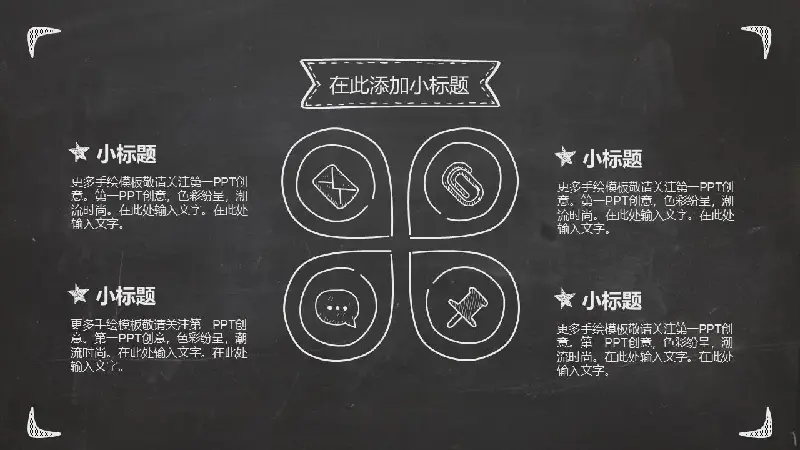 在此添加小标题
小标题
更多手绘模板敬请关注第一PPT创
意。第一PPT创意，色彩纷呈，潮
流时尚。在此处输入文字。在此处
输入文字。
小标题
更多手绘模板敬请关注第一PPT创
意。第一PPT创意，色彩纷呈，潮
流时尚。在此处输入文字。在此处
输入文字。
小标题
更多手绘模板敬请关注第一PPT创
意。第一PPT创意，色彩纷呈，潮
流时尚。在此处输入文字。在此处
输入文字。
小标题
更多手绘模板敬请关注第一PPT创
意。第一PPT创意，色彩纷呈，潮
流时尚。在此处输入文字。在此处
输入文字。